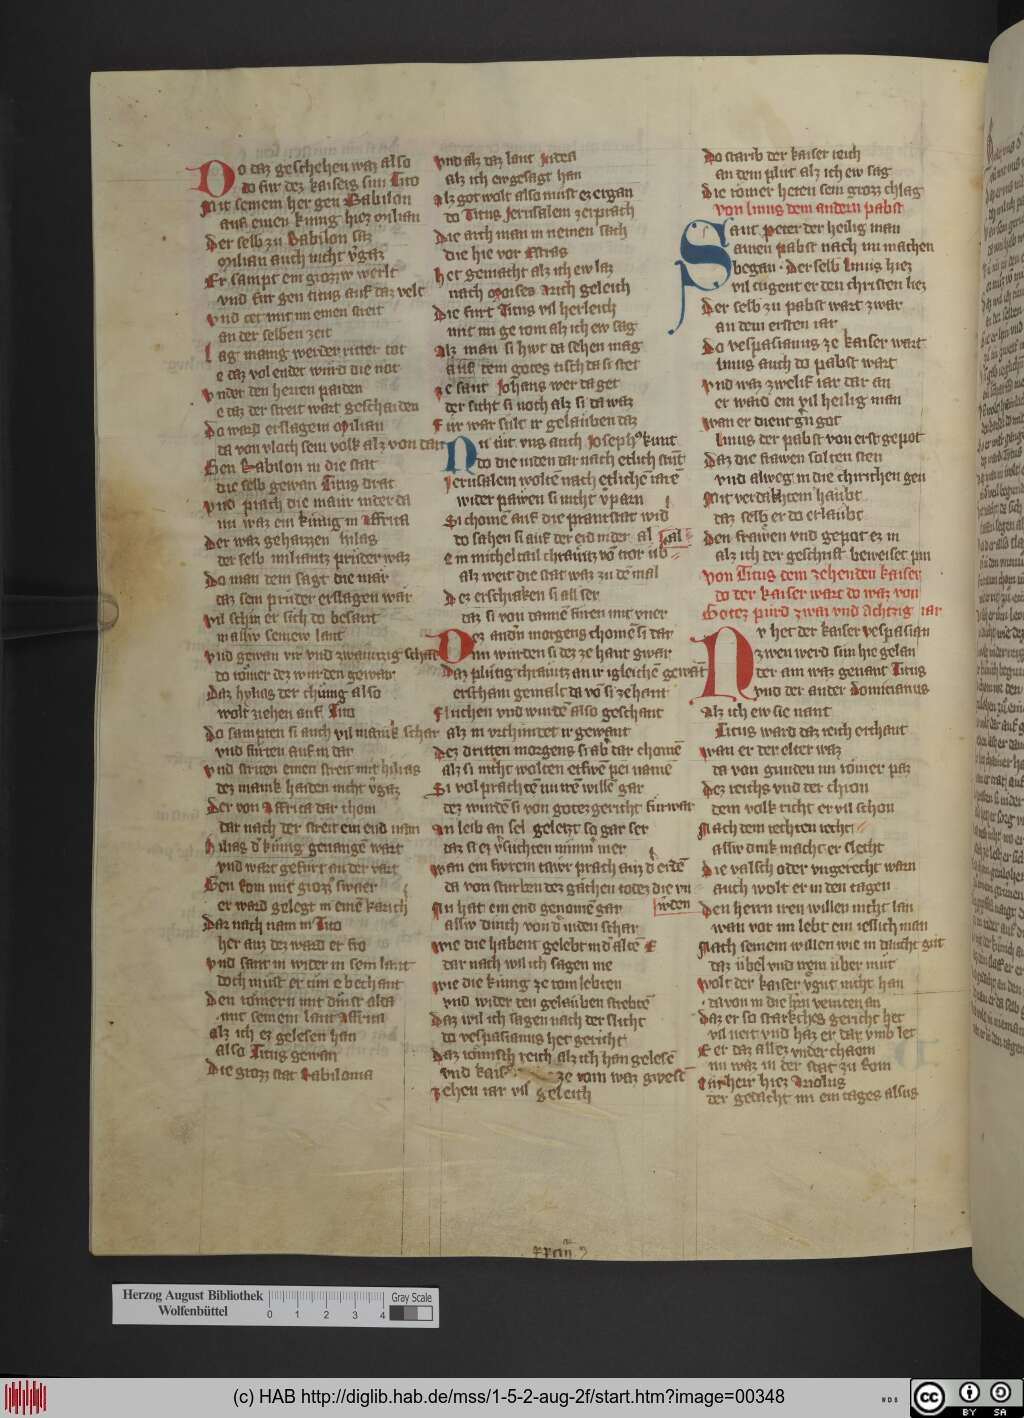 Do daz geschehen waz also
do fur dez kaisers sun Tito
Mit seinem her gen Babilon
auf einen kunig hiez Milian
Der selb zu Babilon saz
Milian auch nicht vgaz
Er sampt ein grozzw werlt
vnd fur gen titus auf daz velt
vnd tet mit im einen streit
an der selben zeit
Lag manig werder ritter tot
e daz vol endet wurd die not
vnder den herren paiden
e daz der streit wart geschaiden
Do ward erslagen Milian
da von vloch sein volk alz von dan
Gen Babilon in die stat
die selb gewan Titus drat
vnd prach die maur nider da
nu waz ein kunig in Affrica
Der waz gehaizzen hilas
der selb miliantz pruder waz
Do man dem sagt die mär
daz sein pruder erslagen wär
vil schir er sich do besant
in allw seinew lant
vnd gewan vir vnd zwaintzig schar
do romer dez wurden gewar
Daz hylias der chunig also
wolt ziehen auf Tito
Do sampten si auch vil manik schar
vnd furten auf in dar
vnd striten einen streit mit hilias
dez manik haiden nicht vgaz
Der von Affrica dar chom
dar nach der streit ein end nam
hilias d kunig gevangē wart
vnd wart gefurt an der vart
Gen Rom mit grozz swaer
er ward gelegt in einē karich
Dar nach nam in Tito
her auz dez ward er fro
vnd sant in wider in sein lant
doch must er im e bechant
Den römern mit dinst alda
mit seinem lant Affrica
Alz ich ez gelesen han
also Titus gewan
Die grozz stat Babilonia
vnd alz daz lant Judea
alz ich ew gesagt han
Alz got wolt also must ez ergan
do Titus Jerusalem zerprach
Die arch man in neinen sach
die hie vor Esdras
het gemacht alz ich ew laz
nach Moises Arch geleich
Die furt Titus vil herleich
mit im ge rom alz ich ew sag
Alz man si hwt da sehen mag
auf dem gotes tisch da si stet
ze sant Johans wer da get
der sicht si noch alz si da waz
Fur war sult ir gelauben daz
Nu tut vns auch Josephus kunt
do die iuden dar nach etlich stūt
Jerusalem woltē nach etlichē iarē
wider pawen si nicht vparn
Si chomē auf die prantstat wid
do sahen si auf der erd nider al
val
e in michel tail chrautz vō tror ub
alz weit die stat waz zu dē mal
Dez erschraken si all ser
daz si von dannē furen mit vner
Dez andn morgens chomē si dar
nu wurden si dez ze hant gwar
Daz plutig chrautz an ir igleichē gewāt
erscham gemalt da vō si ze hant
Fluchen vnd wurdē also geschant
alz in vrchundet ir gewant
Dez dritten morgens si ab dar chomē
alz si nicht wolten etswē pei namē
Si vol prachtē im irē willē gar
dez wurdē si von gotez gericht fur war
An leib an sel geletzt so gar ser
daz si ez vsuchten nimm mer
wan ein swrein tawr prach auz d erdē
da von sturben dez gachen todez die vn
wden
Nu hat ein end genomē gar
allw dinch von d iuden schar
wie die habent gelebt in d altē E
dar nach wil ich sagen me
wie die kunig ze rom lebten
vnd wider den gelauben strebtē
Daz wil ich sagen nach der slicht
do vespasianus het gericht
Daz römisch reich alz ich han gelesē
vnd kais ze rom waz gwest
zehen iar vil geleich
Do starb der kaiser reich
an dem plut alz ich ew sag
Die römer heten sein grozz chlag
von linus dem andern pabst
Sant Peter der heilig man
ainen pabst nach im machen
began Der selb linus hiez
vil tugent er den christen liez
Der selb zu pabst wart zwar
an dem ersten iar
Do vespasianus ze kaiser wart
linus auch do pabst wart
vnd waz zwelif iar dar an
er ward ein vil heilig man
wan er dient gn got
linus der pabst von erst gepot
Daz die frawen solten sten
vnd alweg in die chirichen gen
Mit verdakhtem haubt
daz selb er do erlaubt
Den frawen vnd gepot ez in
alz ich der geschrift beweiset pin
von Titus dem zehenden kaiser
do der kaiser wart do waz von
Gotez purd zwai vnd Achtzig iar
Nv het der kaiser vespasian
zwen werd sun hie gelan
der ain waz genant Titus
vnd der ander Domicianus
Alz ich ew sie nant
Titus ward daz reich erchant
wan er der elter waz
da von gunden im römer paz
Dez reichs vnd der chron
dem volk richt er vil schon
Nach dem rechten recht
allw dink macht er slecht
Die valsch oder vngerecht warn
auch wolt er in den tagen
Den herrn iren willen nicht lan
wan vor im lebt ein ieslich man
Nach seinem willen wie in dаucht gut
daz übel vnd wem über müt
wolt der kaiser vgut nicht han
davon in die hrn veinten an
Daz er so starkches gericht het
vil neit vnd haz er dar vmb let
E er daz allez vnder chaom
nu waz in der stat zu Rom
Ein herr hiez Ariolus
der gedacht im ein tages alsus
Herzog August Bibliothek
Wolfenbüttel
0 1 2 3 4
Gray Scale
(c) HAB http://diglib.hab.de/mss/1-5-2-aug-2f/start.htm?image=00348
WDB
cc BY SA